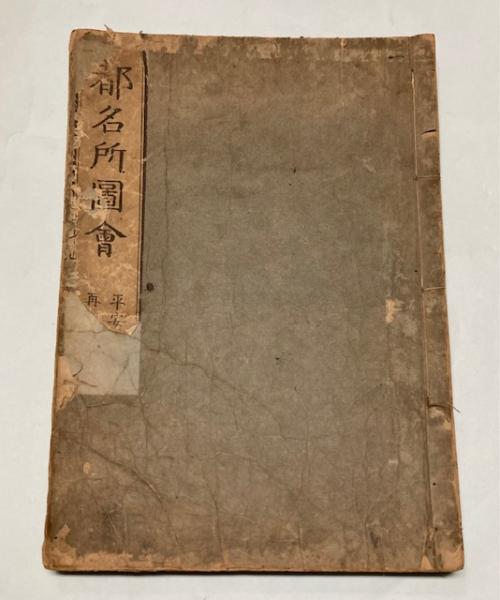 都名所圖會
平安
再